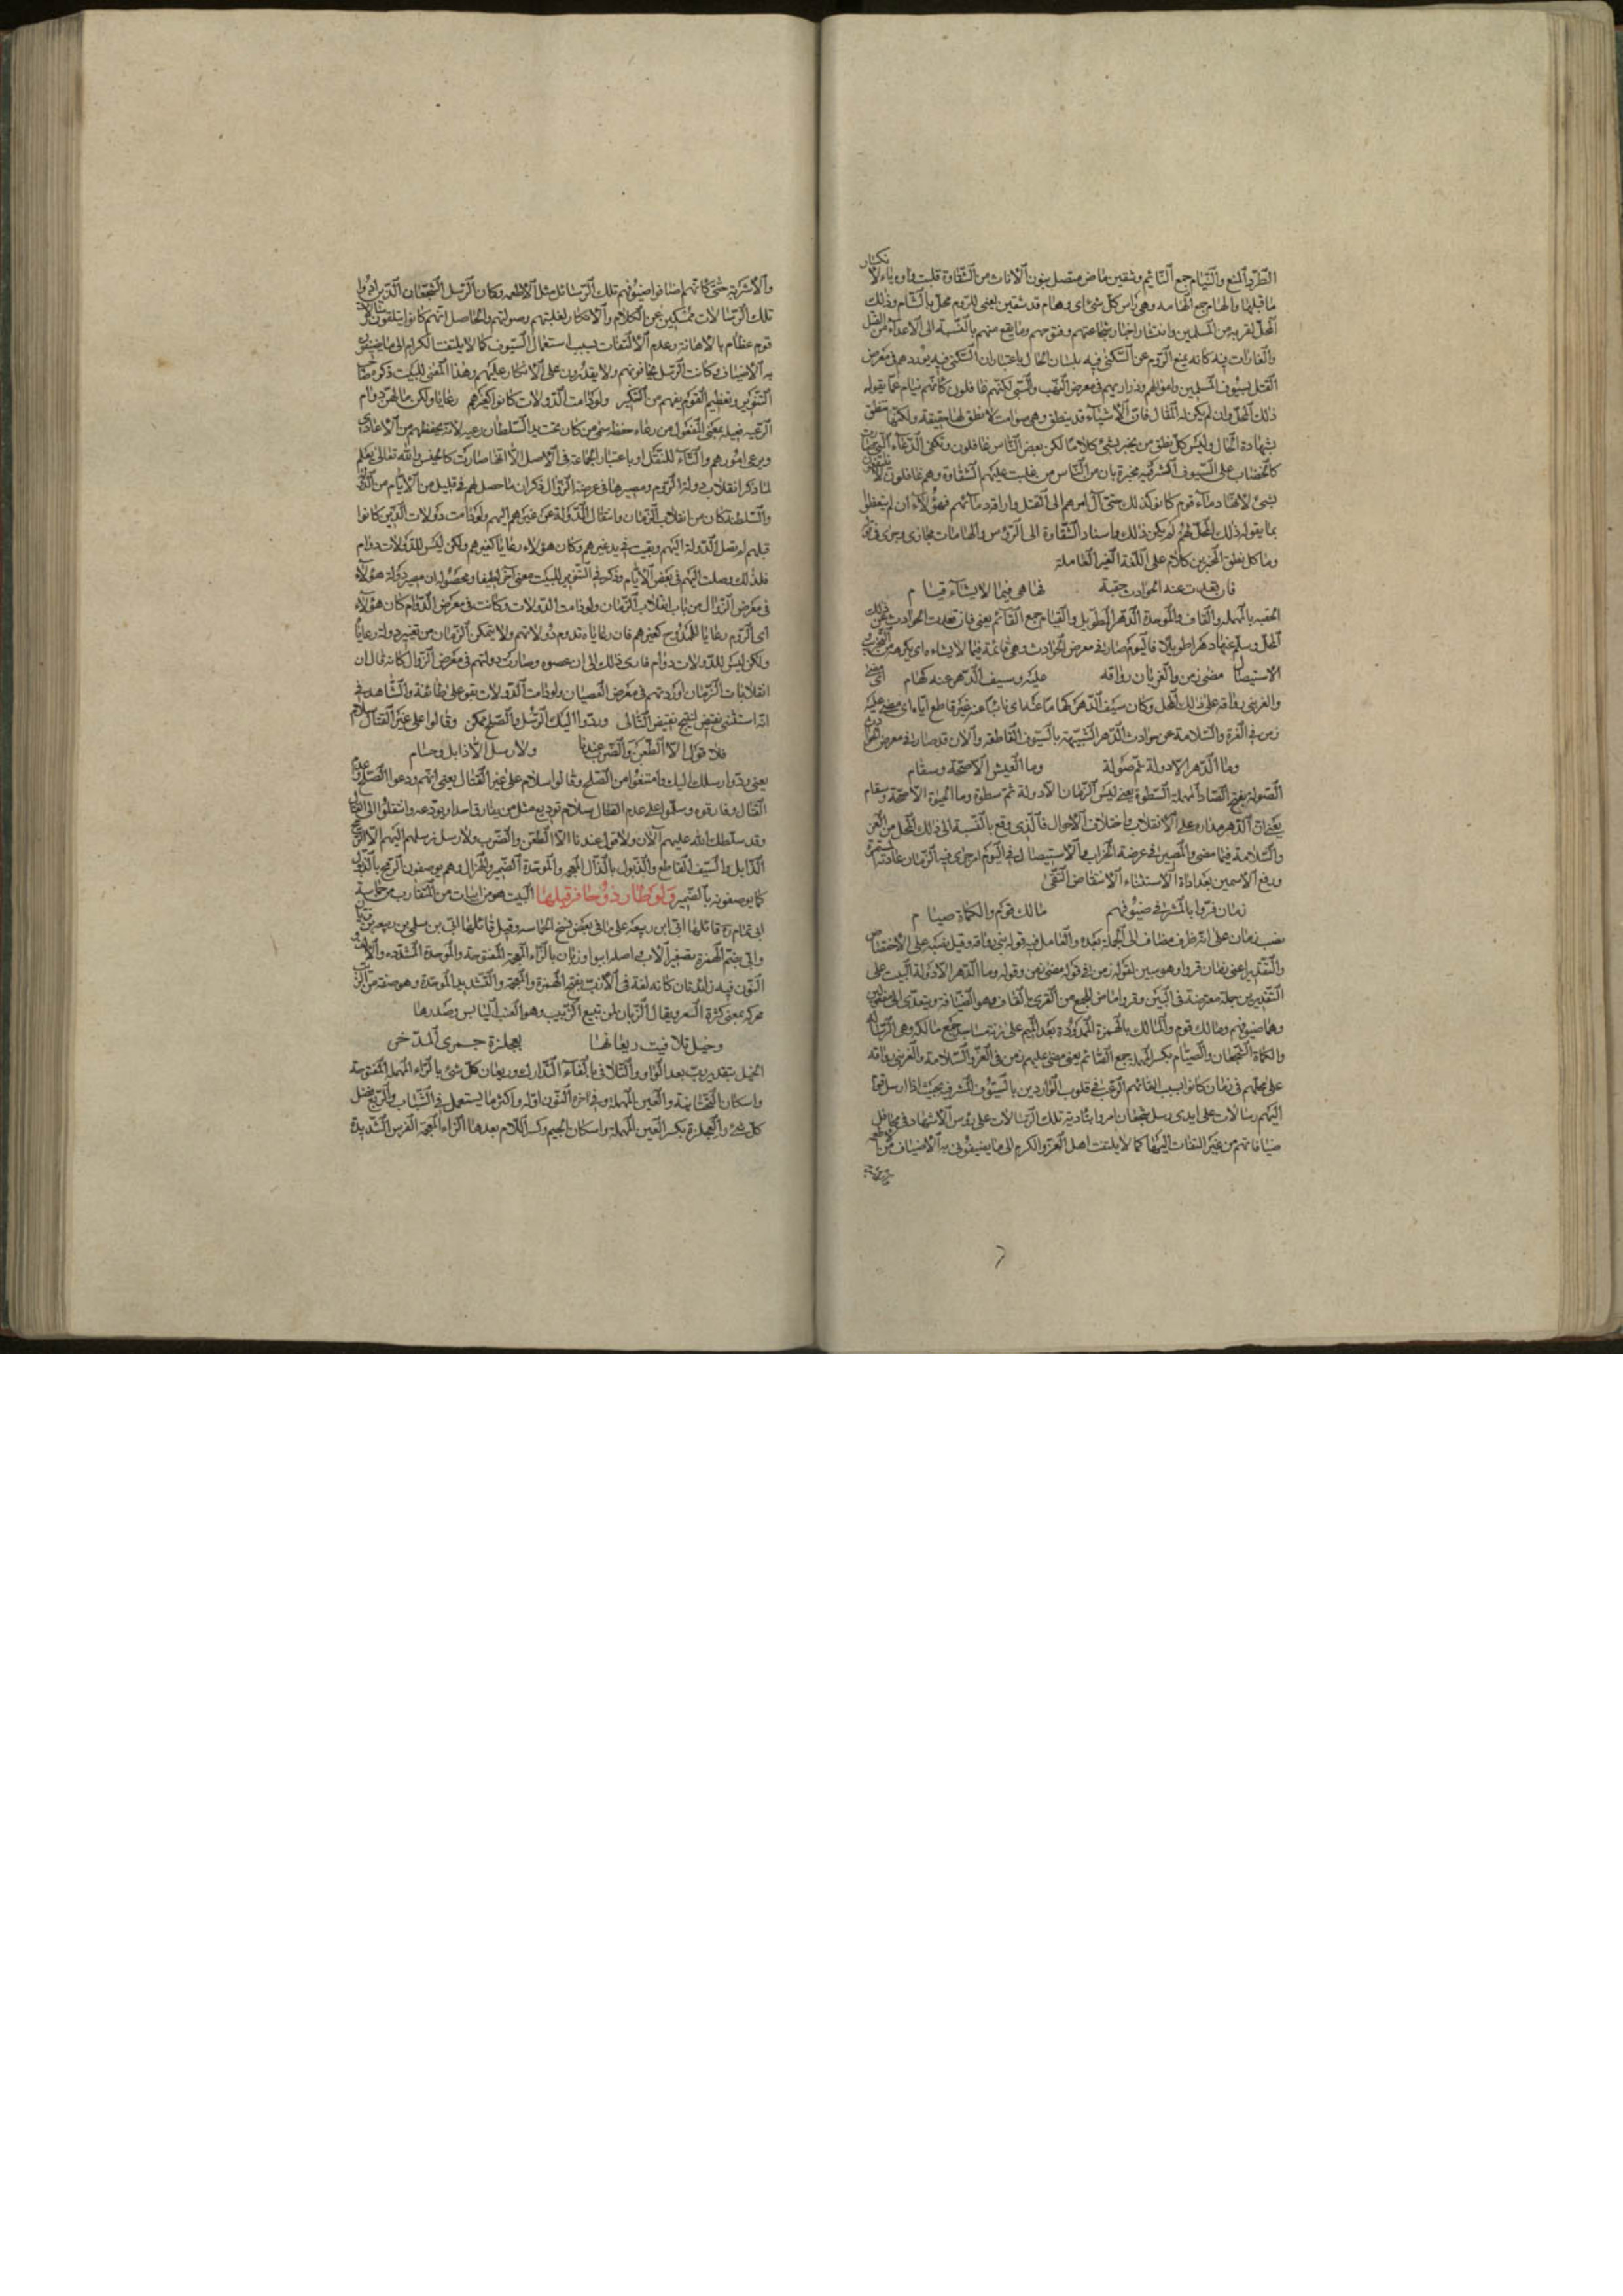 الطرد المنع والنيام جمع النائم وشقين ماض متصل بنون الاناث من الشقاوة قلبت واوه ياء لانكسار
ما قبلها والهام جمع الهامة وهي راس كل شئ اى وهام قد شقين يعنى للروم محل بالشام وذلك
المحل لقربه من المسلمين وانتشار اخبار شجاعتهم وفتوحهم وما يقع منهم بالنسبة الى الاعداء من القتل
والغارات فيه كانه يمنع الروم عن السكنى فيه بلسان الحال باعتبار ان السكنى فيه يوردهم فى معرض
القتل بسيوف المسلمين واموالهم وذراريهم فى معرض النهب والسبى لكنهم غافلون كانهم نيام عما يقوله
ذلك المحل وان لم يكن له المقال فان الاشياء قد ينطق وهى صوامت لا نطق لها حقيقة ولكنها تنطق
بشهادة الحال وليس كل نطق من يخبر بشئ كلاما لكن بعض الناس غافلون وتكفى الدماء التى صارت
كالخضاب على السيوف المشرفية مخبرة بان من الناس من غلبت عليهم الشقاوة وهم غافلون لا يلتفتون
بشئ لاهقاد ماء قوم كانوا كذلك حتى آل امرهم الى القتل واراقة دمائهم فهؤلاء ان لم يتعظوا
بما يقوله ذلك المحل لهم لم يكن ذلك واسناد الشقاوة الى الرؤس والهامات مجازى وجرى فى قوله
وما كل نطق المخبرين كلام على اللغة الغير العاملة
فان قعدت عنه الحوادث حقبة فها هى فيما لا يشاء قيام
الحقبة بالمهملة والقاف والموحدة الدهر الطويل والقيام جمع القائم يعنى فان قعدت الحوادث عن ذلك
المحل وسلم عنها دهرا طويلا فاليوم صار فى معرض الحوادث وهى قائمة فيما لا يشاءه اى يكرهه من التخريب
الاستيصال مضى زمن والعز بان رواقه عليه وسيف الدهر عنه كهام اى مضى
والعز بنى رواقه على ذلك المحل وكان سيف الدهر كهاما عنه اى نابيا عنه غير قاطع اياه اى مضى عليه
زمن فى العزة والسلامة عن حوادث الدهر الشبيهة بالسيوف القاطعة والآن قد صار فى معرض الحوادث
وما الدهر الا دولة ثم صولة وما العيش الا صحة وسقام
الصولة بفتح الصاد المهملة السطوة يعنى ليس الزمان الا دولة ثم سطوة وما الحيوة الا صحة وسقام
يعنى ان الدهر مداره على الانقلاب واختلاف الاحوال فالذى وقع بالنسبة الى ذلك المحل من العز
والسلامة فيما مضى والمصير فى عرضة الخراب والاستيصال فى اليوم امر جرى فيه الزمان على عادته المستمرة
ورفع الاسمين بعد اداة الاستثناء لانتقاض النفى
زمان قروا بالمشرفى ضيوفهم مالك قوم والكماة صيام
نصب زمان على انه ظرف مضاف الى الجملة بعده والعامل فيه قوله بنى رواقه وقيل نصبه على الاختصاص
والتقدير اعنى زمان قروا وهو مبين لقوله زمن فى قوله مضى زمن وقوله وما الدهر الا دولة البيت على
التقديرين جملة معترضة فى البين وقروا ماض للجمع من القرى بالقاف وهو الضيافة ويتعدى الى مفعولين
وهما ضيوفهم ومالك قوم والمآلك بالهمزة الممدودة بعد الميم على زنة مساجد جمع مالكة وهى الرسالة
والكماة الشجعان والصيام بكسر المهملة جمع الصائم يعنى مضى عليهم زمن فى العز والسلامة والعز بنى رواقه
على محلهم فى زمان كانوا بسبب القائهم الرعب فى قلوب الواردين بالسيوف المشرفية بحيث اذا ارسل قوم
اليهم رسالات على ايدى رسل شجعان امروا بتادية تلك الرسالات على رؤس الاشهاد فى محافل
ضيافاتهم من غير التفات اليها كما لا يلتفت اهل العز والكرم الى ما يضيفون به الاضياف من الاطعمة
والاشربة حتى كانهم اضافوا ضيوفهم تلك الرسائل مثل الاطعمة وكان الرسل الشجعان الذين ادوا
تلك الرسالات ممسكين عن الكلام والانكار لغلبتهم وصولتهم والحاصل انهم كانوا يتلقون رسالات
قوم عظام بالاهانة وعدم الالتفات بسبب استعمال السيوف كما لا يلتفت الكرام الى ما يضيفون
به الاضياف وكانت الرسل يخافونهم ولا يقدرون على الانكار عليهم وهذا المعنى للبيت ذكره صاحب
التنوير وتعظيم القوم يفهم من التنكير ولو دامت الدولات كانوا كغيرهم رعايا ولكن ما لهن دوام
الرعية فعيلة بمعنى المفعول من رعاه حفظه سمى من كان تحت يد السلطان رعية لانه يحفظهم من الاعادى
ويرعى امورهم والتاء للنقل او باعتبار الجماعة فى الاصل الا انها صارت كالحيف والله تعالى يعلم
لما ذكر انقلاب دولة الروم ومصيرها فى عرضة الزوال ذكر ان ما حصل لهم فى قليل من الايام من الدولة
والسلطنة كان من انقلاب الزمان وانتقال الدولة عن غيرهم اليهم ولو دامت دولات الذين كانوا
قبلهم لم تصل الدولة اليهم وبقيت فى يد غيرهم وكان هؤلاء رعايا كغيرهم ولكن ليس للدولات دوام
فلذلك وصلت اليهم فى بعض الايام وذكر فى التنوير للبيت معنى آخر لطيفا ومحصوله ان مصير دولة هؤلاء
فى معرض الزوال من باب انقلاب الزمان ولو دامت الدولات وكانت فى معرض الدوام كان هؤلاء
اى الروم رعايا للممدوح كغيرهم فان رعاياه تدوم دولاتهم ولا يتمكن الزمان من تغيير دولة رعاياه
ولكن ليس للدولات دوام فادى ذلك الى ان عصوه وصارت دولتهم فى معرض الزوال كانه قال ان
انقلابات الزمان اوردتهم فى معرض العصيان ولو دامت الدولات بقوا على طاعته والشاهد فى
انه استثنى نقيض لينتج نقيض التالى وردوا اليك الرسل والصلح ممكن وقالوا على غير القتال سلام
فلا قول الا الطعن والضرب عندنا ولا رسل الا ذابل وحسام
يعنى ردوا رسلك اليك وامتنعوا من الصلح وقالوا سلام على غير القتال يعنى انهم ودعوا الصلح وعدم
القتال وفارقوه وسلموا على عدم القتال سلام توديع مثل من يفارق احدا ويودعه وانتقلوا الى القتال
وقد سلطك الله عليهم الآن ولا قول عندنا الا الطعن والضرب ولا رسل نرسلهم اليهم الا الرمح
الذابل والسيف القاطع والذبول بالذال المعجمة والموحدة الضمير والهزال وهم يوصفون الرمح بالذبول
كما يوصفونه بالضمير ولو طار ذو حافر قبلها البيت هو من ابيات من المتقارب من حماسة
ابى تمام ره قائلها ابى ابن ربيعة على ما فى بعض نسخ الحماسة وقيل قائلها ابى بن سلمى بن ربيعة بن زبان
وابى بضم الهمزة تصغير الاب اصله ابيو وزبان بالزاء المعجمة المفتوحة والموحدة المشددة والالف و
النون فيه زائدتان كانه لغة فى الازب بفتح الهمزة والمعجمة والتشديد الموحدة وهو صفة من الزبب
محركه بمعنى كثرة الشعر ويقال الزبان لمن يبيع الزبيب وهو العنب اليابس وصدرها
وخيل تلافيت ريعانها بعجلزة جمزى المدخر
الخيل بتقدير رب بعد الواو والتلافى بالفاء التدارك وريعان كل شئ بالراء المهملة المفتوحة
واسكان التحتانية والعين المهملة وفى اخره النون اوله واكثر ما يستعمل فى الشباب والربيع افضل
كل شئ والعجلزة بكسر العين المهملة واسكان الجيم وكسر اللام بعدها الزاء المعجمة الفرس الشديدة